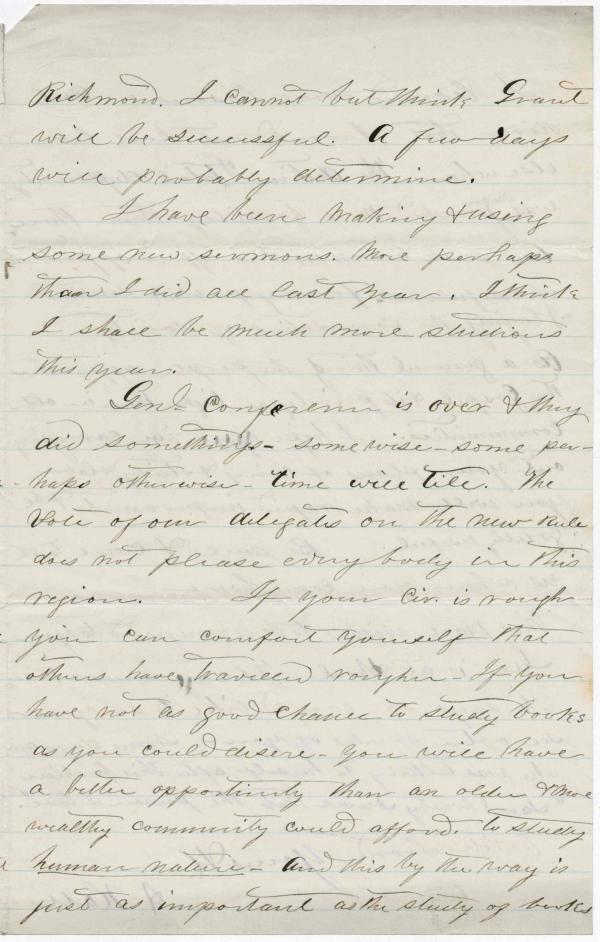 Richmond. I cannot but think Grant
will be successful. A few days
will probably determine.
I have been making & using
some new sermons. More perhaps
than I did all last year. I think
I shall be much more studious
this year.
Genl. Conference is over & they
did somethings - some wise - some per-
haps otherwise - time will tell. The
Vote of our delegates on the new Rule
does not please everybody in this
region. If your Cir. is rough
you can comfort yourself that
others have travelled rougher - If you
have not as good chance to study books
as you could disere - you will have
a better opportunity than an older & more
wealthy community could afford. to study
human nature - and this by the way is
just as important as the study of books